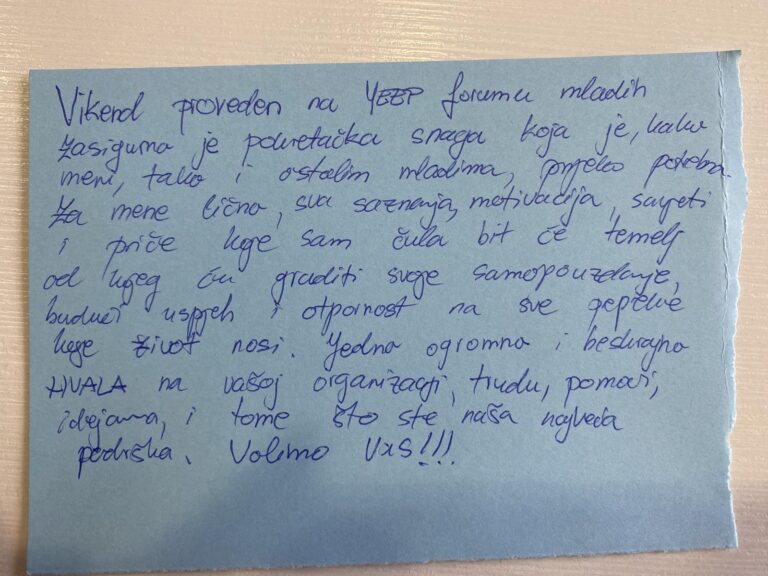 Vikend proveden na YEEP forumu mladih
zasigurno je pokretačka snaga koja je, kako
meni, tako i ostalim mladima, prijeko potrebna.
Za mene lično, sva saznanja, motivacija, savjeti
i priče koje sam čula bit će temelj
od kojeg ću graditi svoje samopouzdanje,
budući uspjeh i otpornost na sve prepreke
koje život nosi. Jedno ogromno i beskrajno
HVALA na vašoj organizaciji, trudu, pomoći,
idejama, i tome što ste naša najveća
podrška. Volimo vas!!!